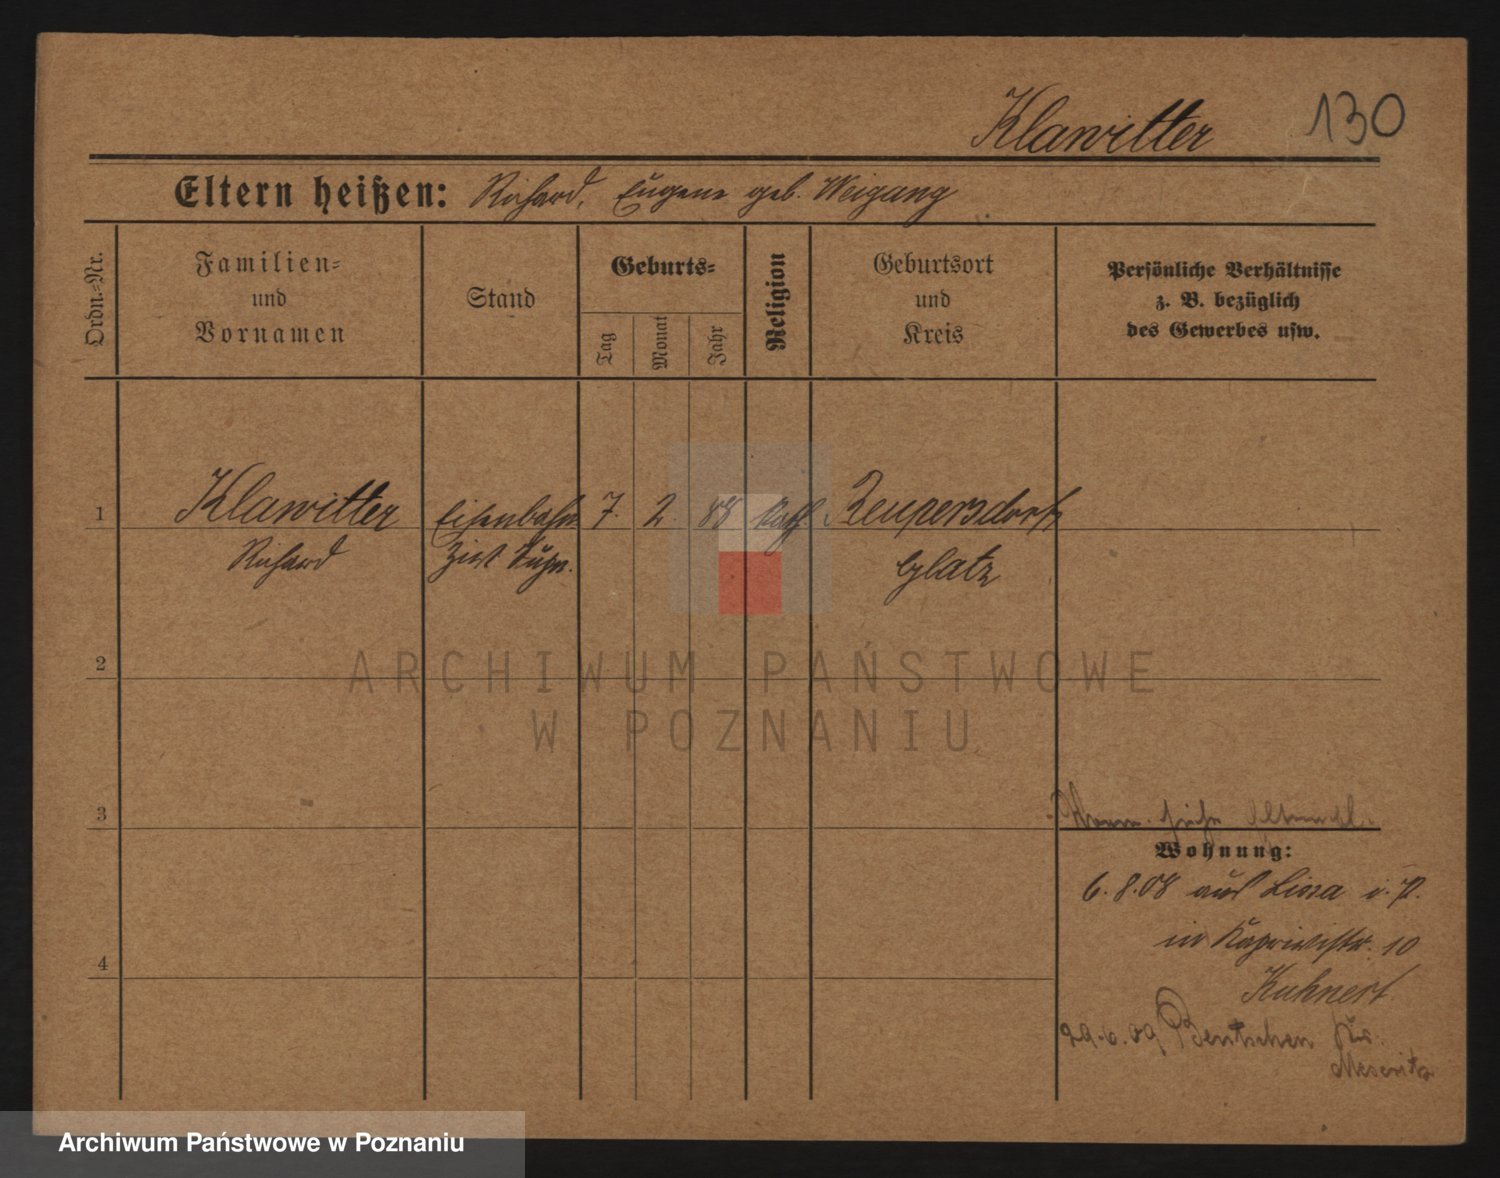 Klawitter 130
Eltern heißen: Richard, Eugene geb. Weigang
Ordn.-Nr.
Familien-
und
Vornamen
Stand
Geburts-
Tag
Monat
Jahr
Religion
Geburtsort
und
Kreis
Persönliche Verhältnisse
z. B. bezüglich
des Gewerbes usw.
1 Klawitter Eisenbahn 7. 2. 88 kath. Reupersdorf
Richard Ziv. Supn. Glatz
2
3
Wohnung:
6.8.08 aus Lissa i. P.
in Kapriwistr. 10
Kuhnert
4
29.6.09 Bentschen Kr.
Meseritz
ARCHIWUM PAŃSTWOWE
W POZNANIU
Archiwum Państwowe w Poznaniu